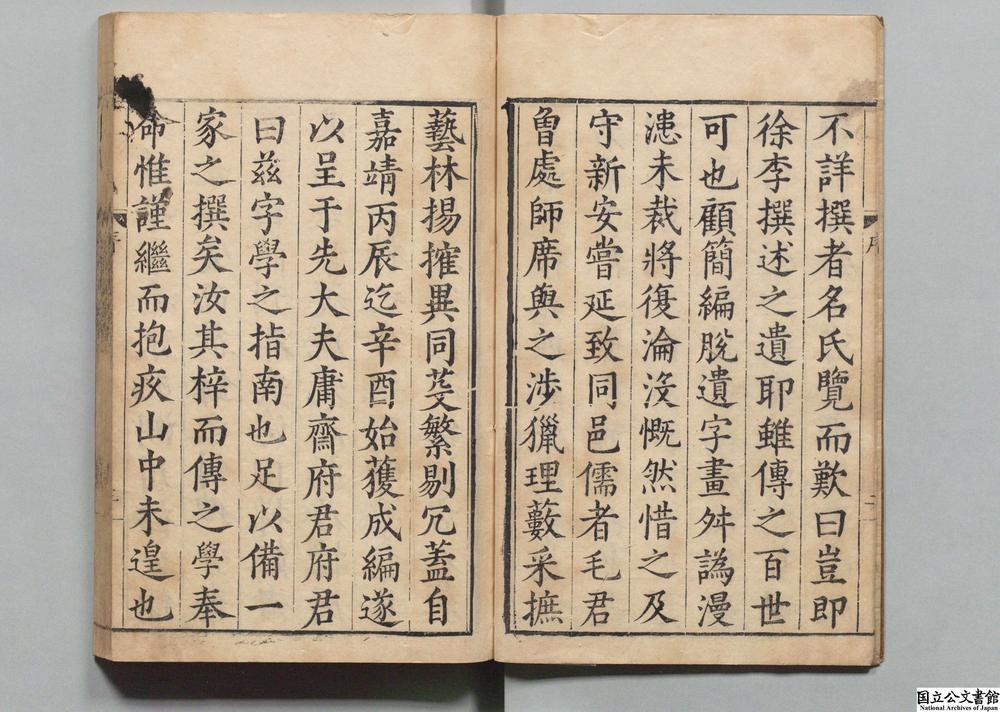 不詳撰者名氏覽而歎曰豈即
徐李撰述之遺耶雖傳之百世
可也顧簡編脫遺字畫舛譌漫
漶未裁將復淪沒慨然惜之及
守新安嘗延致同邑儒者毛君
曾處師席與之涉獵理藪采摭
藝林揚搉異同芟繁剔冗蓋自
嘉靖丙辰迄辛酉始獲成編遂
以呈于先大夫庸齋府君府君
曰茲字學之指南也足以備一
家之撰矣汝其梓而傳之學奉
命惟謹繼而抱疚山中未遑也
序
二
國立公文書館
National Archives of Japan